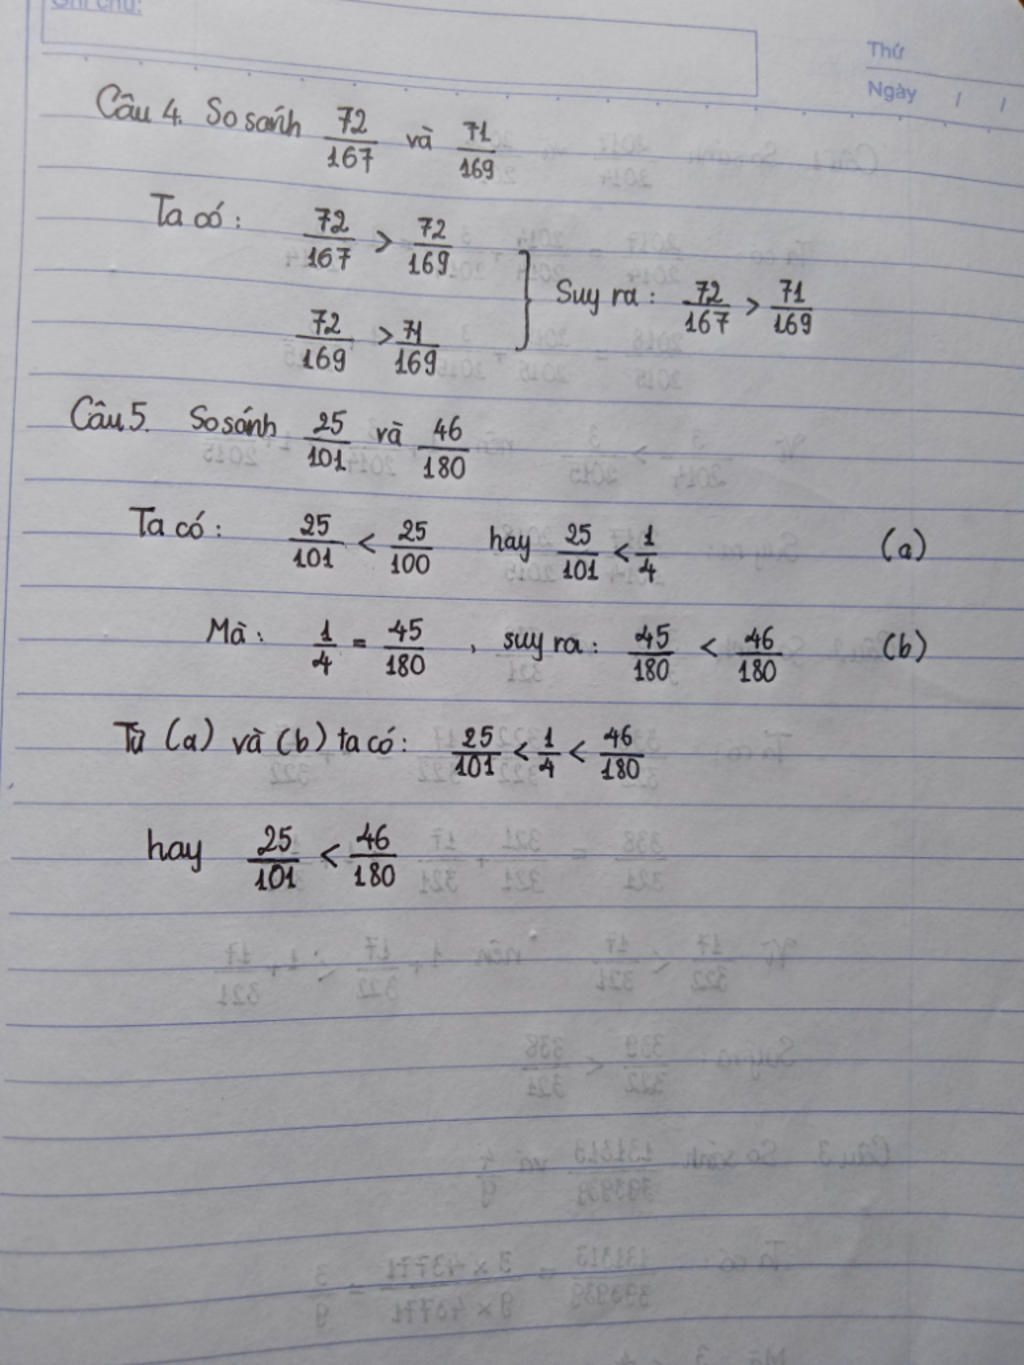 Ghi chú:
Thứ
Ngày / /
Câu 4. So sánh 72/167 và 71/169
Ta có: 72/167 > 72/169
72/169 > 71/169 } Suy ra: 72/167 > 71/169
Câu 5. So sánh 25/101 và 46/180
Ta có: 25/101 < 25/100 hay 25/101 < 1/4 (a)
Mà: 1/4 = 45/180, suy ra: 45/180 < 46/180 (b)
Từ (a) và (b) ta có: 25/101 < 1/4 < 46/180
hay 25/101 < 46/180